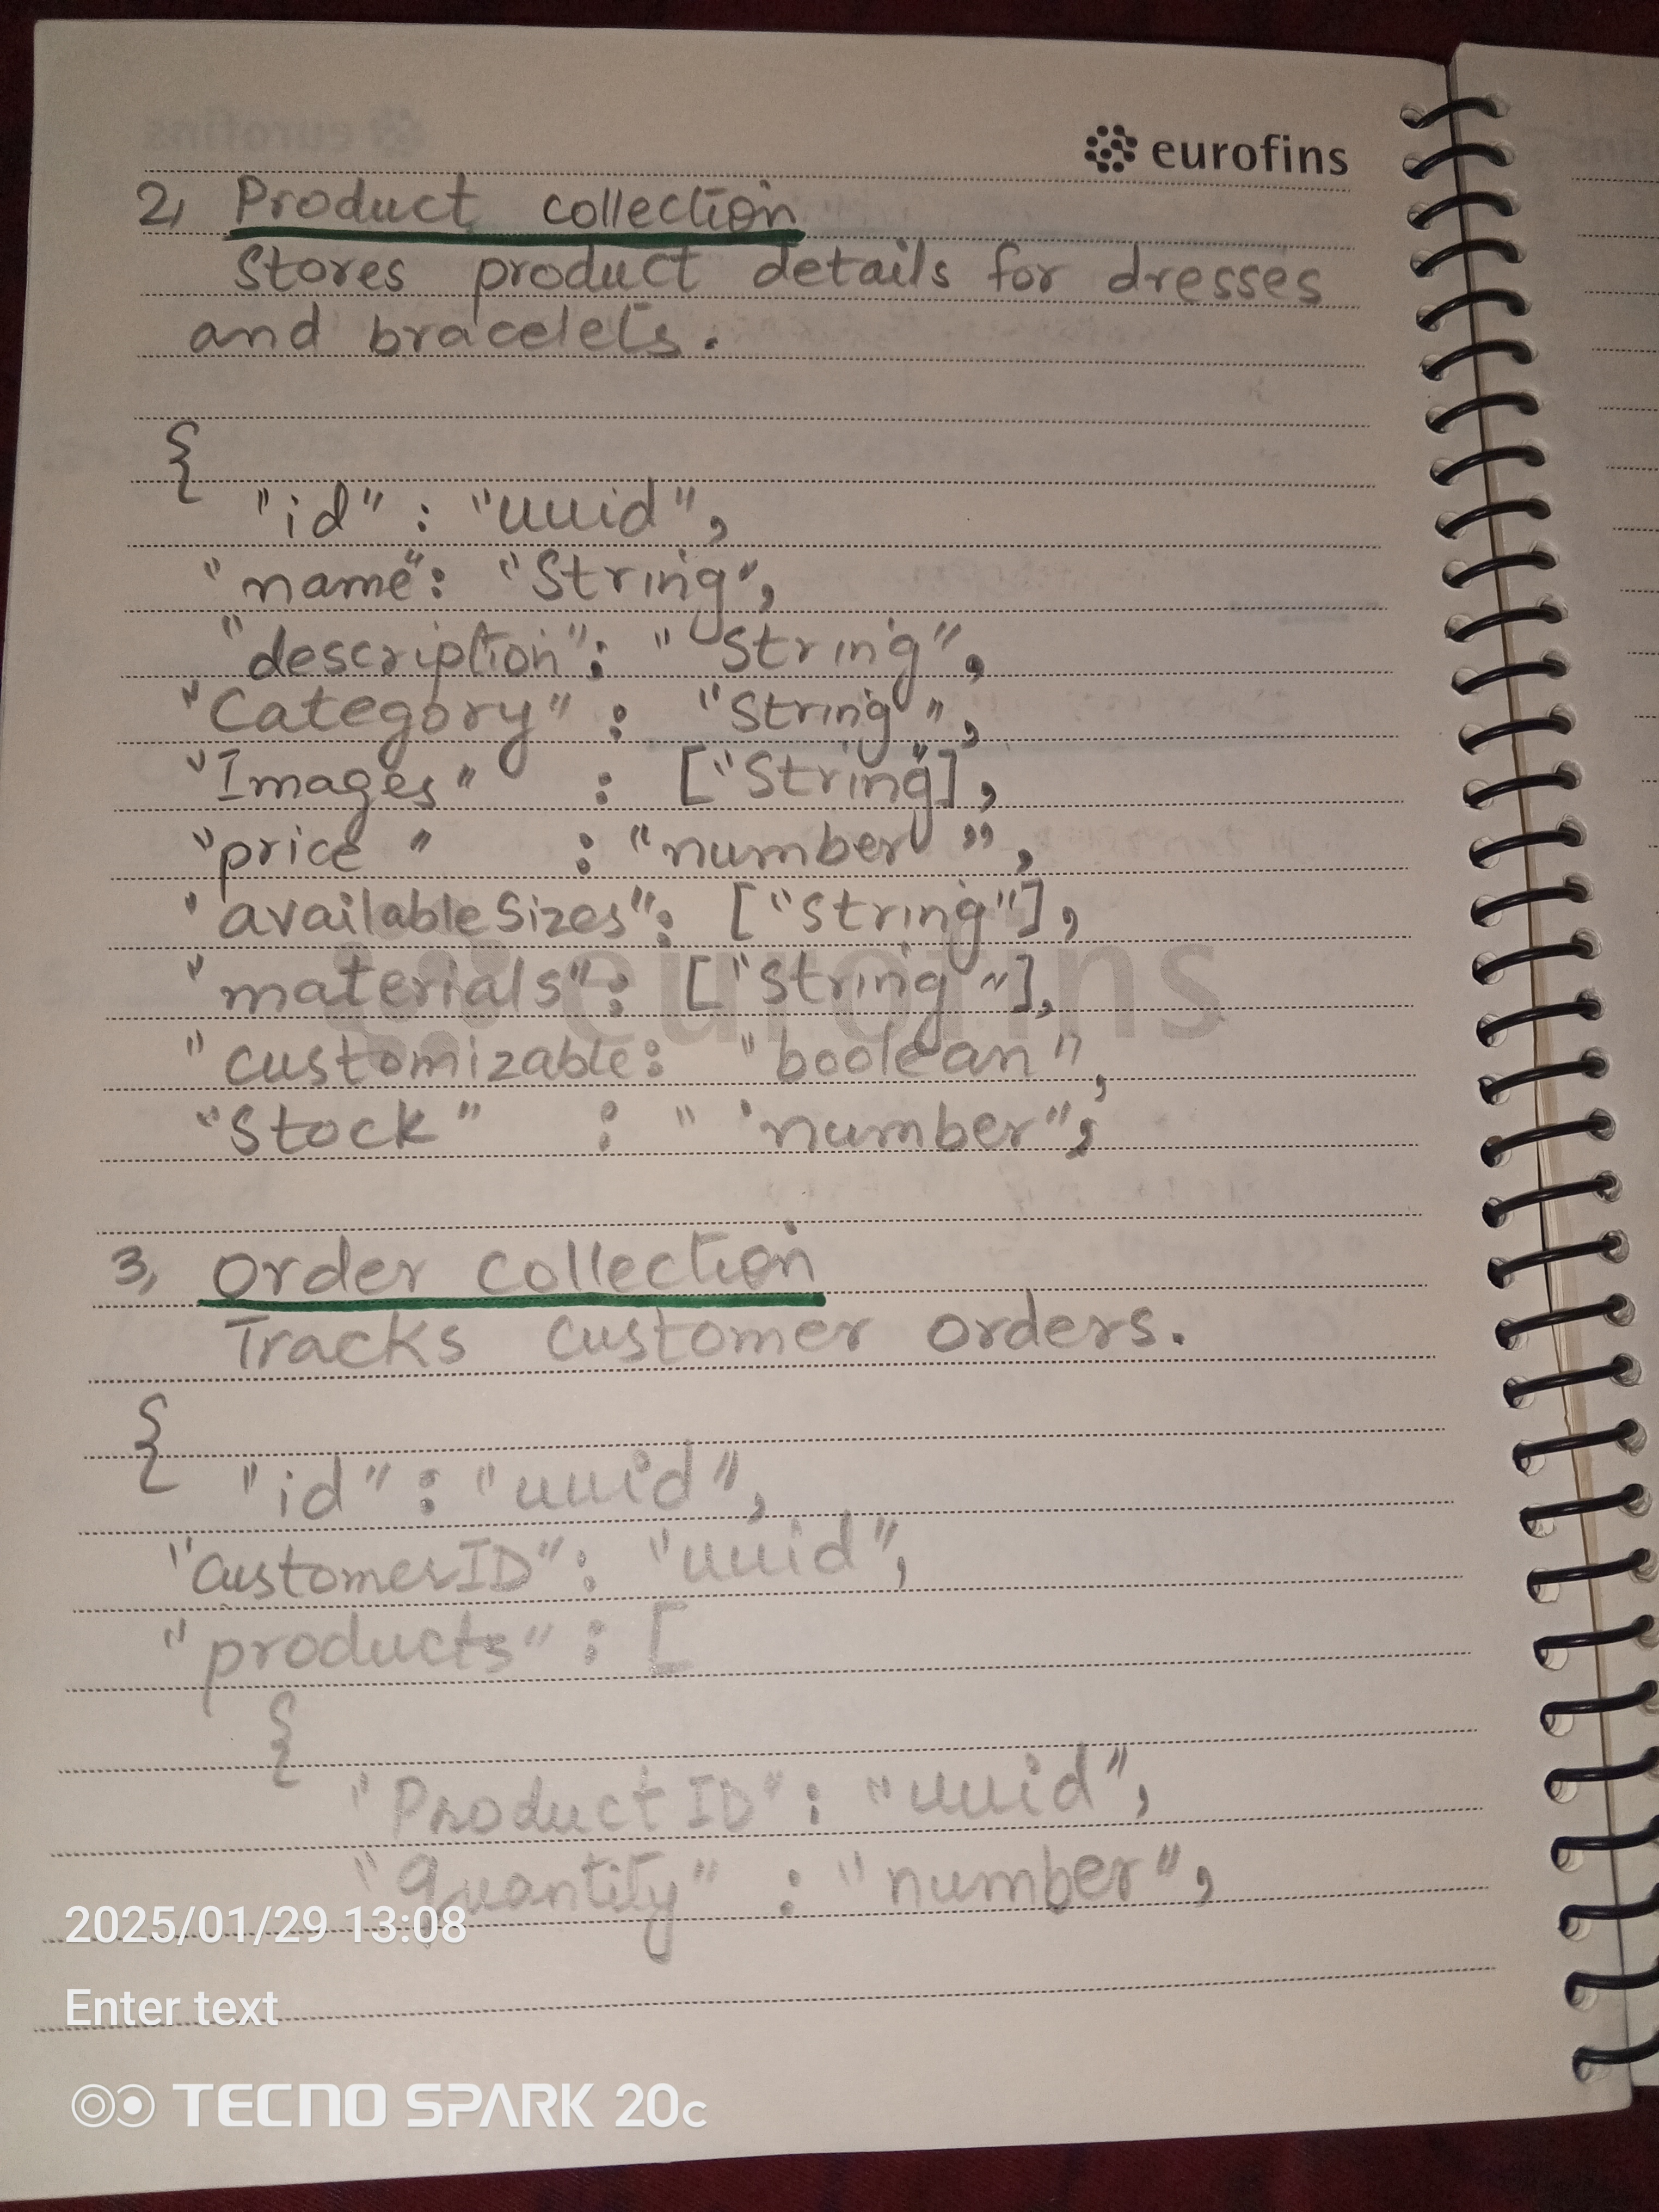 eurofins
2, Product collection
Stores product details for dresses
and bracelets.
{
"id" : "uuid",
"name": "String",
"description": "String",
"Category" : "String",
"Images" : ["String"],
"price" : "number",
"availableSizes": ["String"],
"materials": ["String"],
"customizable: "boolean",
"Stock" : "number",
eurofins
3, Order collection
Tracks customer orders.
{
"id" : "uuid",
"CustomerID": "uuid",
"products" : [
{
"Product ID" : "uuid",
"Quantity" : "number",
2025/01/29 13:08
Enter text
TECNO SPARK 20c